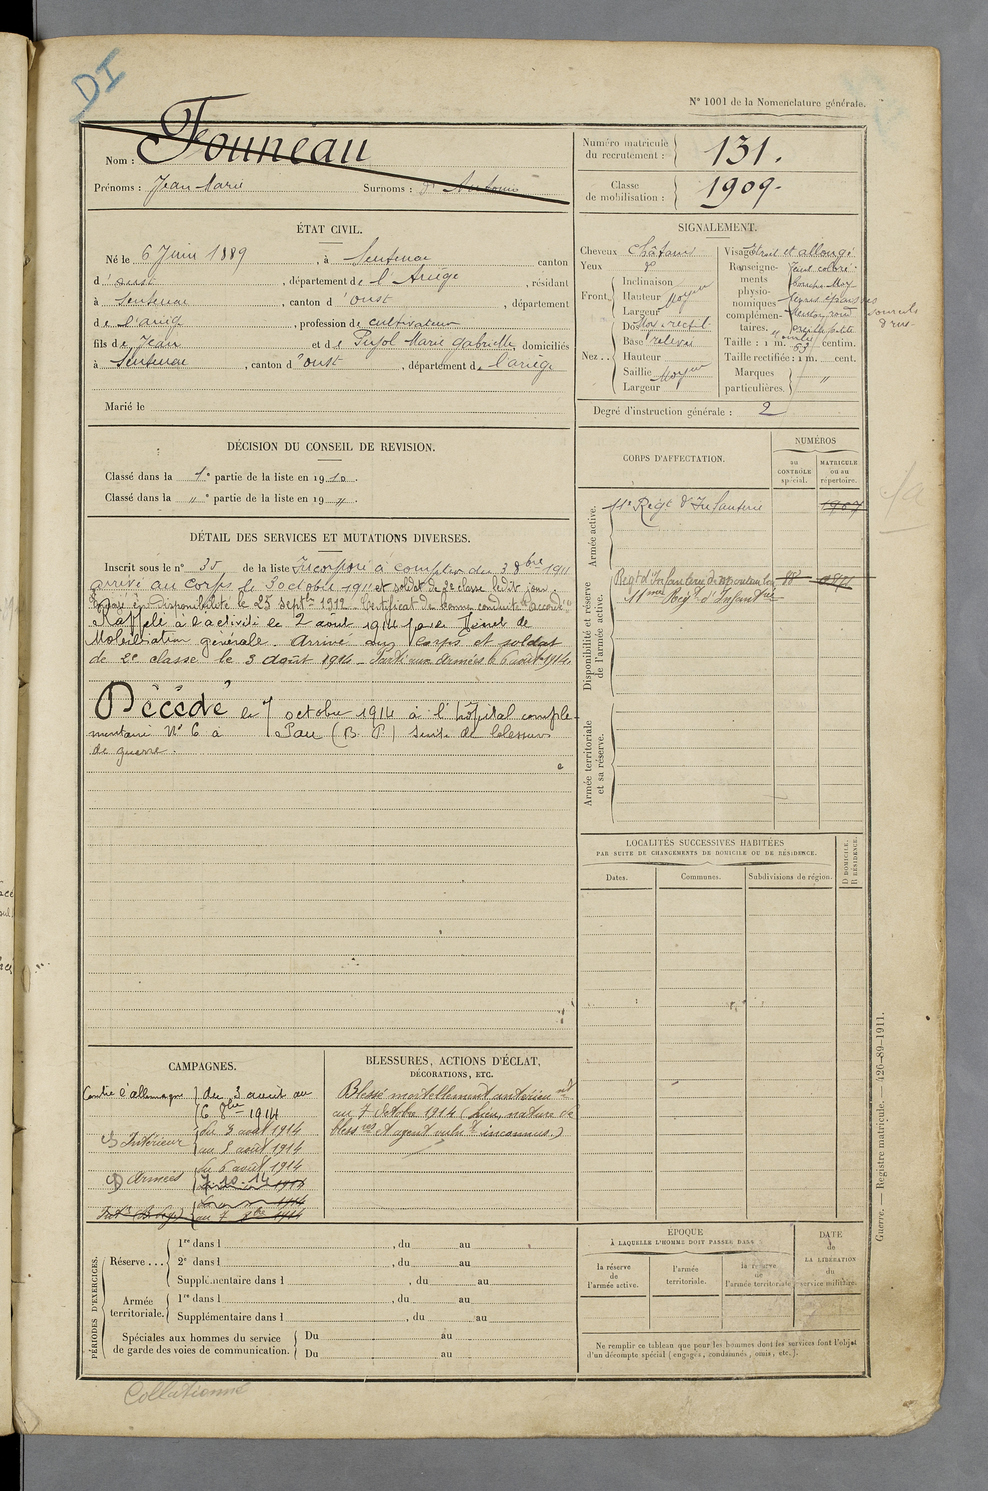 DI
N° 1001 de la Nomenclature générale.
Nom : Founeau
Prénoms : Jean Marie Surnoms : dt Antonin
Numéro matricule du recrutement : 131.
Classe de mobilisation : 1909.
ÉTAT CIVIL.
Né le 6 Juin 1889, à Sentenac canton
d'oust, département de l'Ariège, résidant
à Sentenac, canton d'oust, département
de l'arièg, profession de cultivateur
fils de Jean et de Pujol Marie Gabrielle, domiciliés
à Sentenac, canton d'oust, département de l'arièg
Marié le
SIGNALEMENT.
Cheveux châtains
Yeux
Front
Inclinaison
Hauteur moyen
Largeur
Nez
Dos rectil.
Base relevé
Hauteur
Saillie moyen
Largeur
Visage étroit et allongé
Renseignements physionomiques complémentaires.
Taille : 1 m. 63 centim.
Taille rectifiée : 1 m. cent.
Marques particulières. "
Degré d'instruction générale : 2
DÉCISION DU CONSEIL DE REVISION.
Classé dans la 1e partie de la liste en 1910.
Classé dans la " e partie de la liste en 19 ".
DÉTAIL DES SERVICES ET MUTATIONS DIVERSES.
Inscrit sous le n° 35 de la liste Incorporé à compter du 3 8bre 1911
arrivé au corps le 3 octobre 1911 et soldat de 2e classe ledit jour
en disponibilité le 25 septbre 1912. Certificat de bonne conduite "accordé"
Rappelé à l'activité le 2 aout 1914 par de
Mobilisation générale. Arrivé au corps et soldat
de 2e classe le 3 août 1914 - Parti aux Armées le 6 août 1914.
Décédé le 7 octobre 1914 à l'hôpital complé-
mentaire N° 6 à Pau (B. P.) suite de blessures
de guerre.
CORPS D'AFFECTATION.
NUMÉROS
au CONTRÔLE spécial.
MATRICULE ou au répertoire.
Armée active.
11e Régt d'Infanterie
Disponibilité et réserve de l'armée active.
Régt d'Infanterie de Montauban
11ème Régt d'Infantrie
Armée territoriale et sa réserve.
LOCALITÉS SUCCESSIVES HABITÉES
PAR SUITE DE CHANGEMENTS DE DOMICILE OU DE RÉSIDENCE.
Dates.
Communes.
Subdivisions de région.
D DOMICILE.
R RÉSIDENCE.
CAMPAGNES.
Contre l'allemagne du 3 août au
6 8bre 1914
Intérieur du 3 août 1914
au 5 août 1914
Armées du 6 août 1914
7-10-14
au 7 8bre 1914
BLESSURES, ACTIONS D'ÉCLAT,
DÉCORATIONS, ETC.
Blessé mortellement antérieurt
au 7 Octobre 1914 (Lieu, nature de
blessres et agent vulnt inconnus.)
PÉRIODES D'EXERCICES.
Réserve...
1re dans l , du au
2e dans l , du au
Supplémentaire dans l , du au
Armée territoriale.
1re dans l , du au
Supplémentaire dans l , du au
Spéciales aux hommes du service de garde des voies de communication.
Du au
Du au
ÉPOQUE
À LAQUELLE L'HOMME DOIT PASSER DANS
la réserve de l'armée active.
l'armée territoriale.
la réserve de l'armée territoriale
DATE de LA LIBÉRATION du service militaire.
Ne remplir ce tableau que pour les hommes dont les services font l'objet
d'un décompte spécial (engagés, condamnés, omis, etc.).
Guerre. — Registre matricule. — 426-89-1911.
Collationné